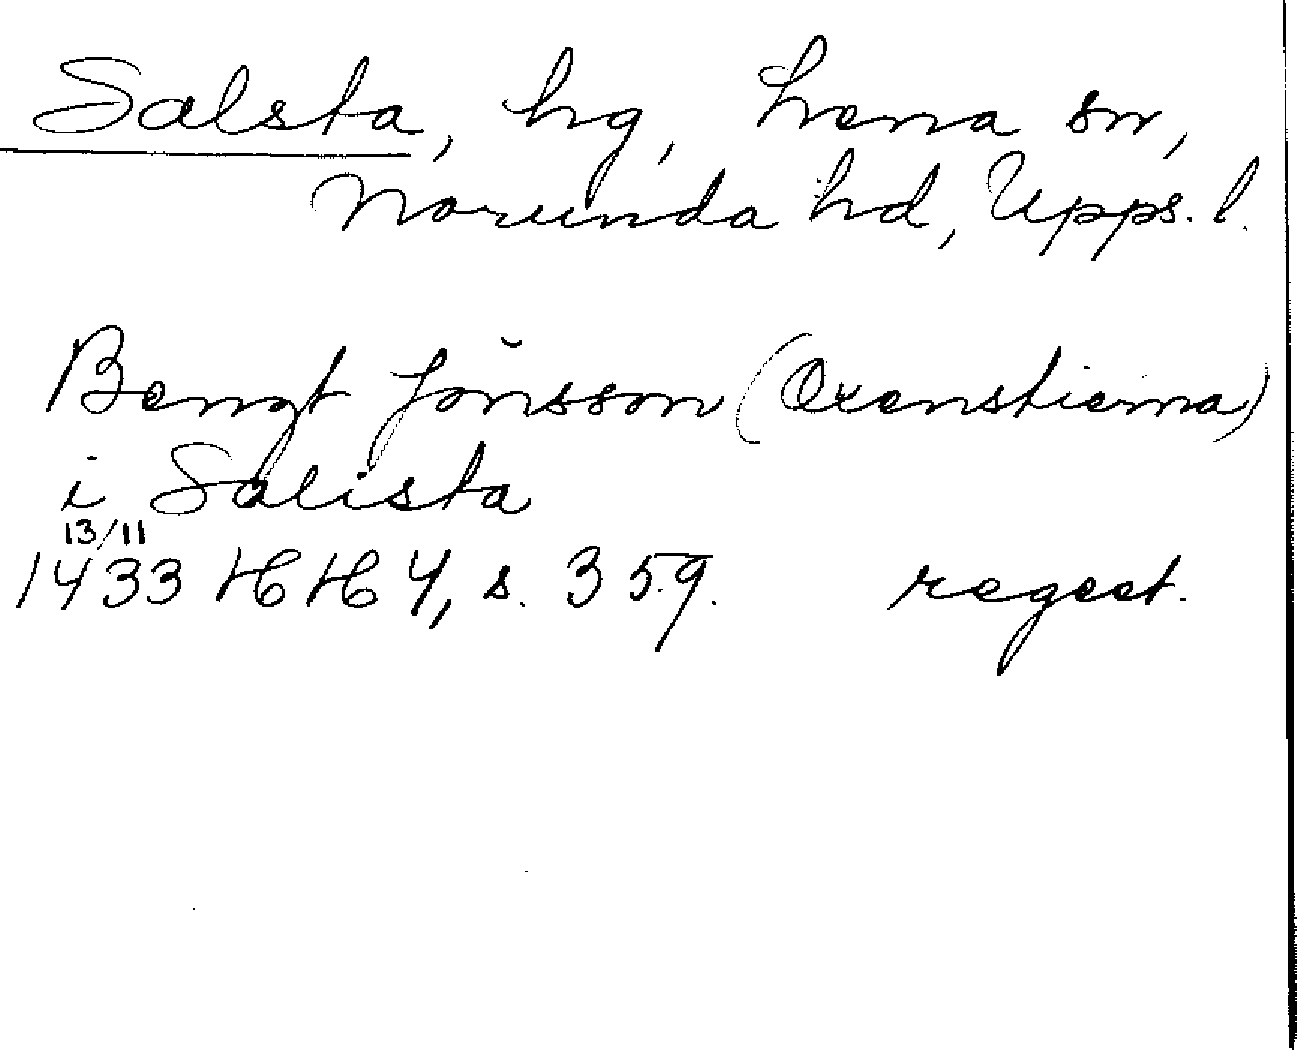 Salsta, hg, Lena sn,
Norunda hd, Upps. l.
Bengt Jönsson (Oxenstierna)
i Salista
13/11
1433 HH 4, s. 359. regest.